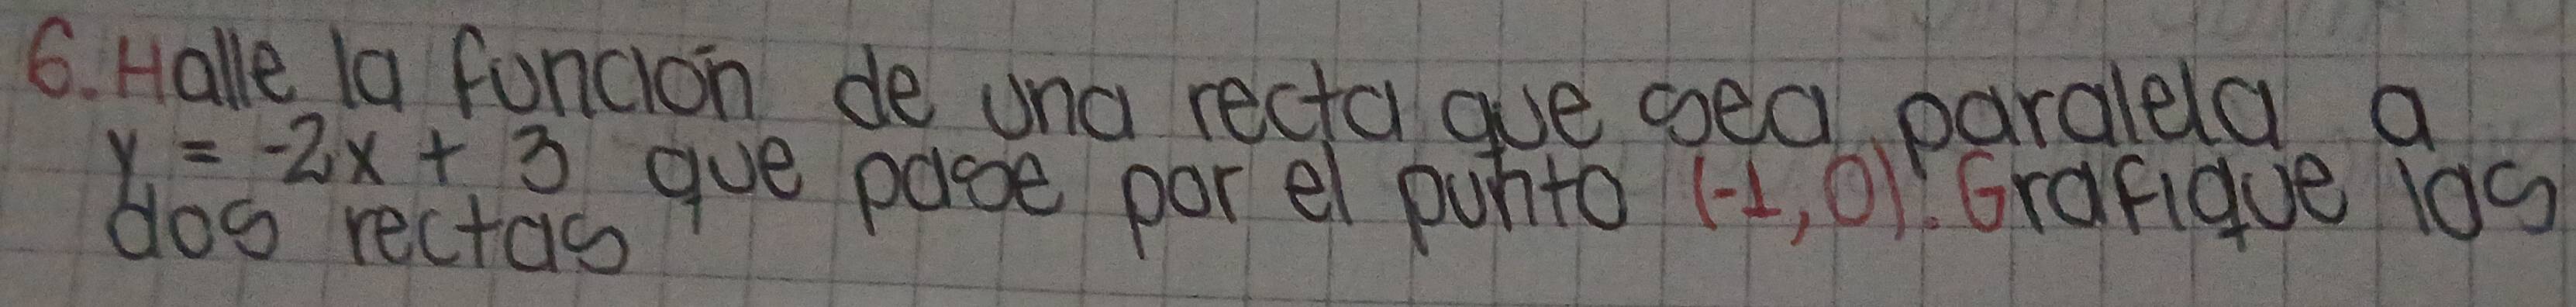 6. Halle la función de una recta que sea paralela a
y = -2x + 3 que pase por el punto (-1, 0). Grafique las
dos rectas